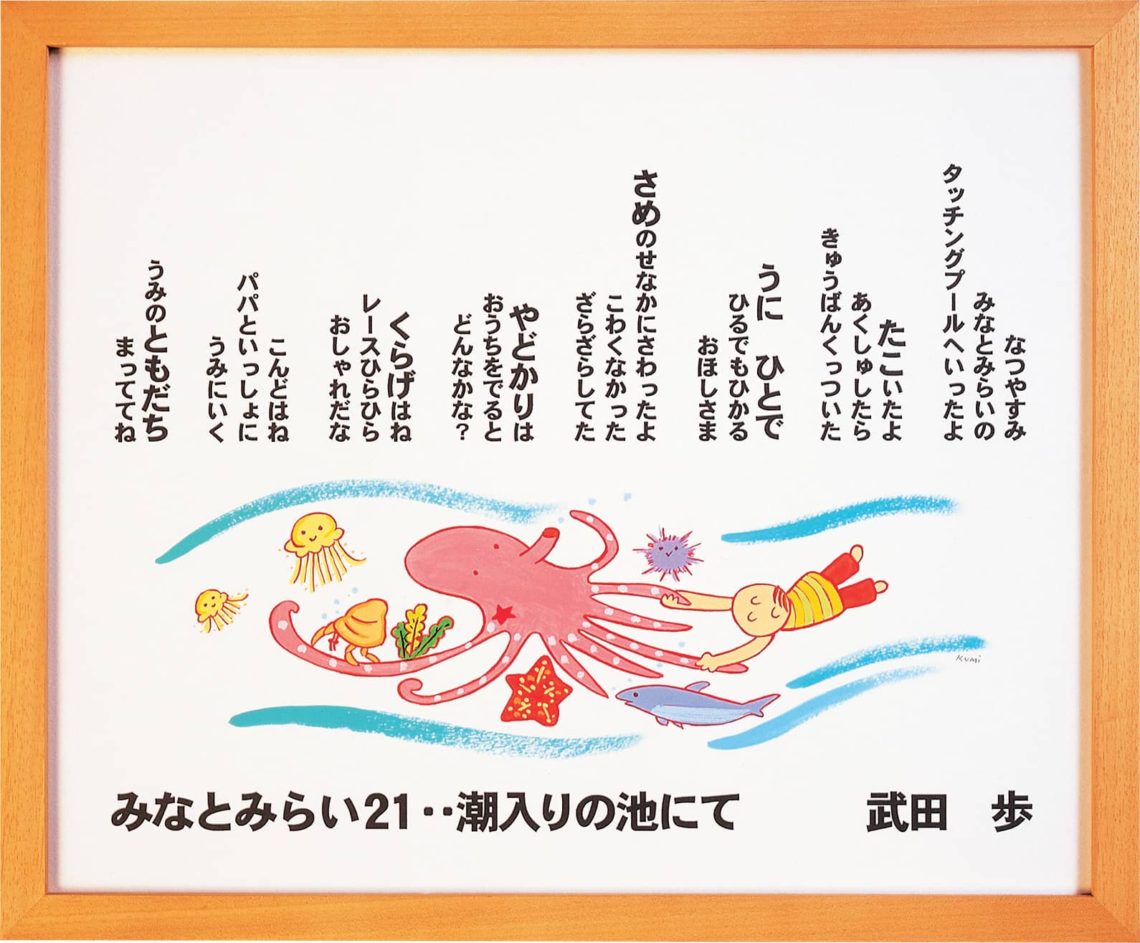 なつやすみ
みなとみらいの
タッチングプールへいったよ
たこいたよ
あくしゅしたら
きゅうばんくっついた
うに　ひとで
ひるでもひかる
おほしさま
さめのせなかにさわったよ
こわくなかった
ざらざらしてた
やどかりは
おうちをでると
どんなかな？
くらげはね
レースひらひら
おしゃれだな
こんどはね
パパといっしょに
うみにいく
うみのともだち
まっててね
KUMi
みなとみらい21‥潮入りの池にて
武田　歩